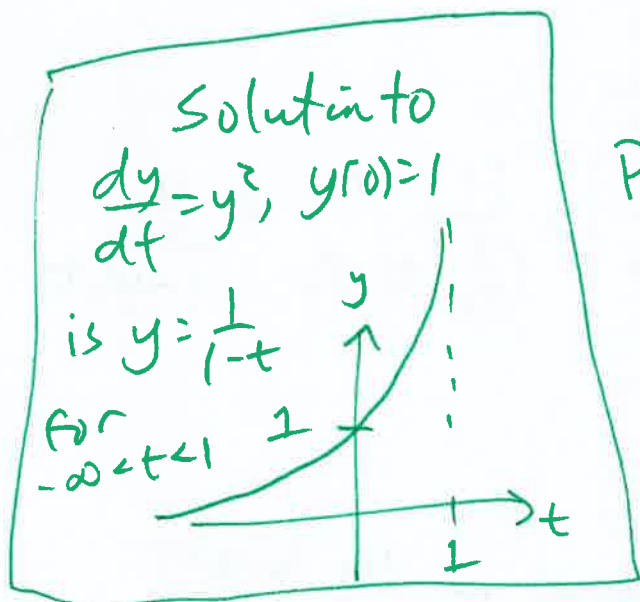 Solution to
dy/dt = y², y(0)=1
is y = 1/(1-t)
for
-∞<t<1
y
1
t
1
P